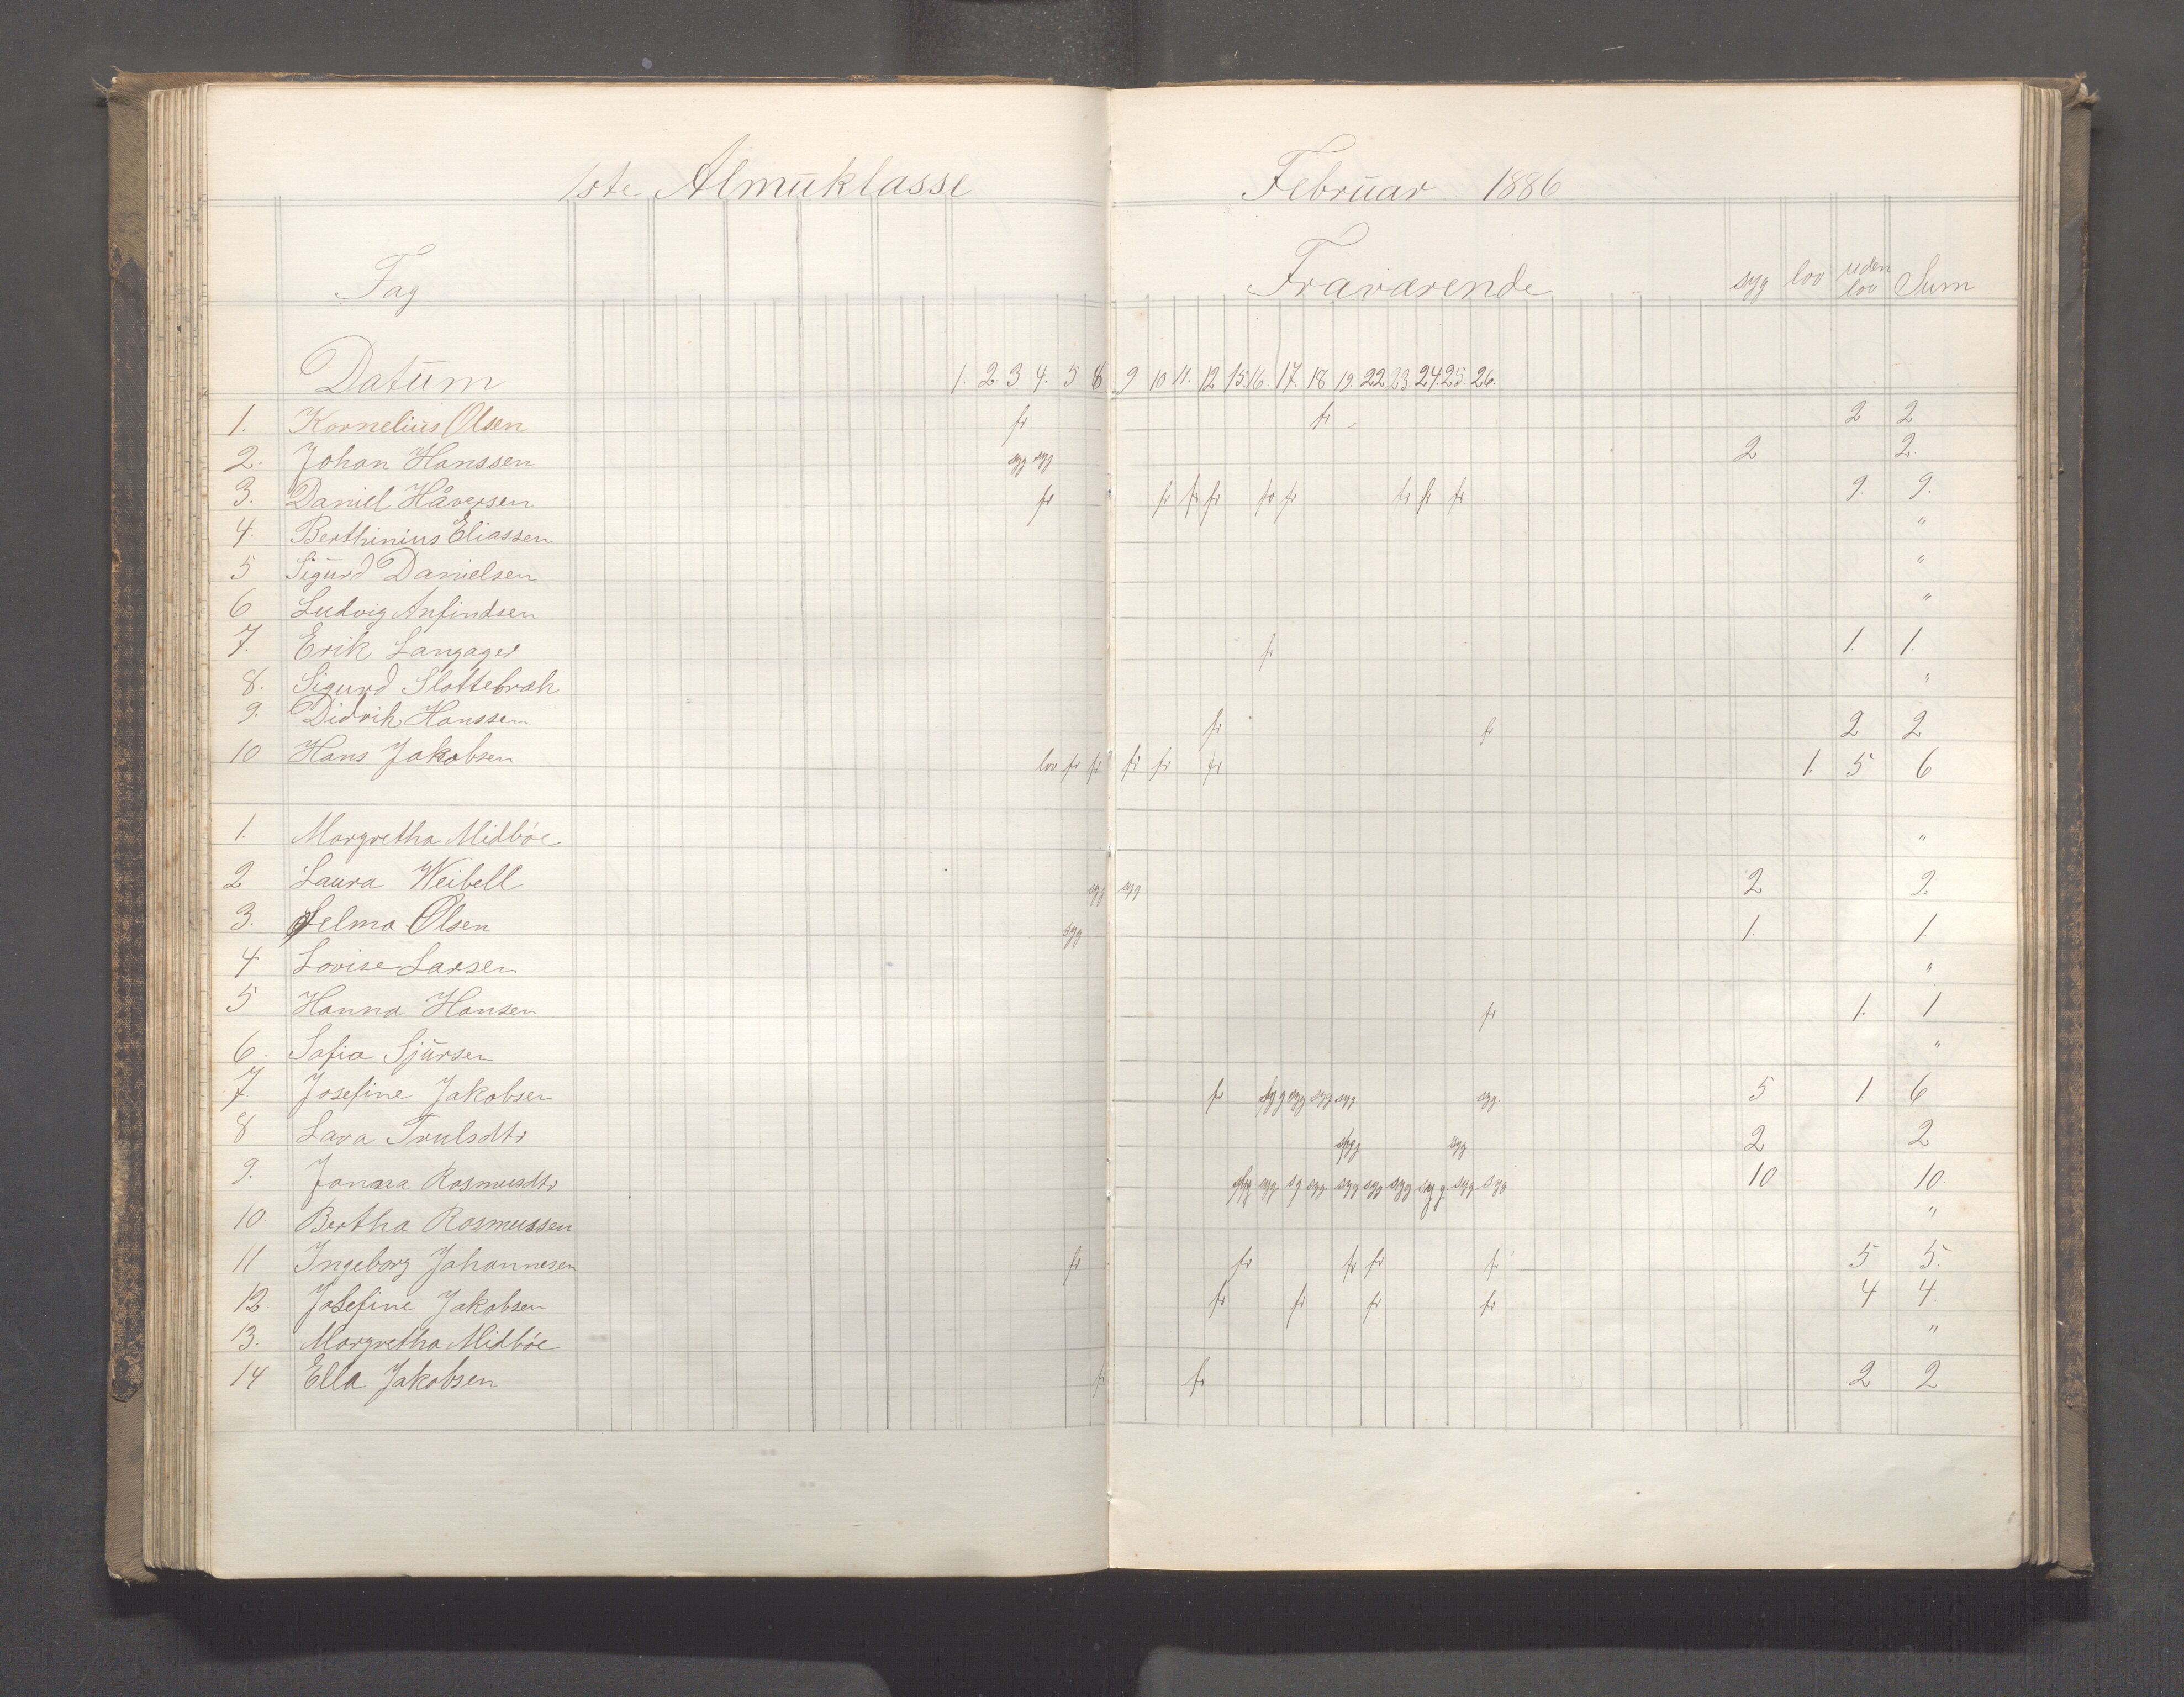 1ste Almuklasse Februar 1886
Fag Fraværende syg lov uden lov Sum
Datum 1. 2 3 4. 5 8 9 10 11. 12 15. 16. 17. 18 19. 22 23. 24. 25. 26.
1. Kornelius Olsen fr fr 2 2
2. Johan Hanssen syg syg 2 2.
3. Daniel Håversen fr fr fr fr fr fr fr fr fr 9. 9.
4. Berthinius Eliassen "
5 Sigurd Danielsen "
6 Ludvig Anfindsen "
7. Erik Langager fr 1. 1.
8. Sigurd Slottebræk "
9. Didrik Hanssen fr fr 2 2
10 Hans Jakobsen lov fr fr fr fr fr 1. 5 6
1. Margretha Midbøe "
2 Laura Weibell syg syg 2 2
3. Selma Olsen syg 1. 1.
4 Lovise Larsen "
5 Hanna Hansen fr 1. 1
6. Sofia Sjursen "
7 Josefine Jakobsen fr syg syg syg syg syg. 5 1 6
8 Lava Trulsdtr syg syg 2 2
9. Janna Rasmusdtr syg syg sg syg syg syg syg syg syg syg 10 10
10. Bertha Rasmussen "
11 Ingeborg Johannesen fr fr fr fr fr 5 5.
12. Josefine Jakobsen fr fr fr fr 4 4.
13. Margretha Midbøe "
14 Ella Jakobsen fr fr 2 2